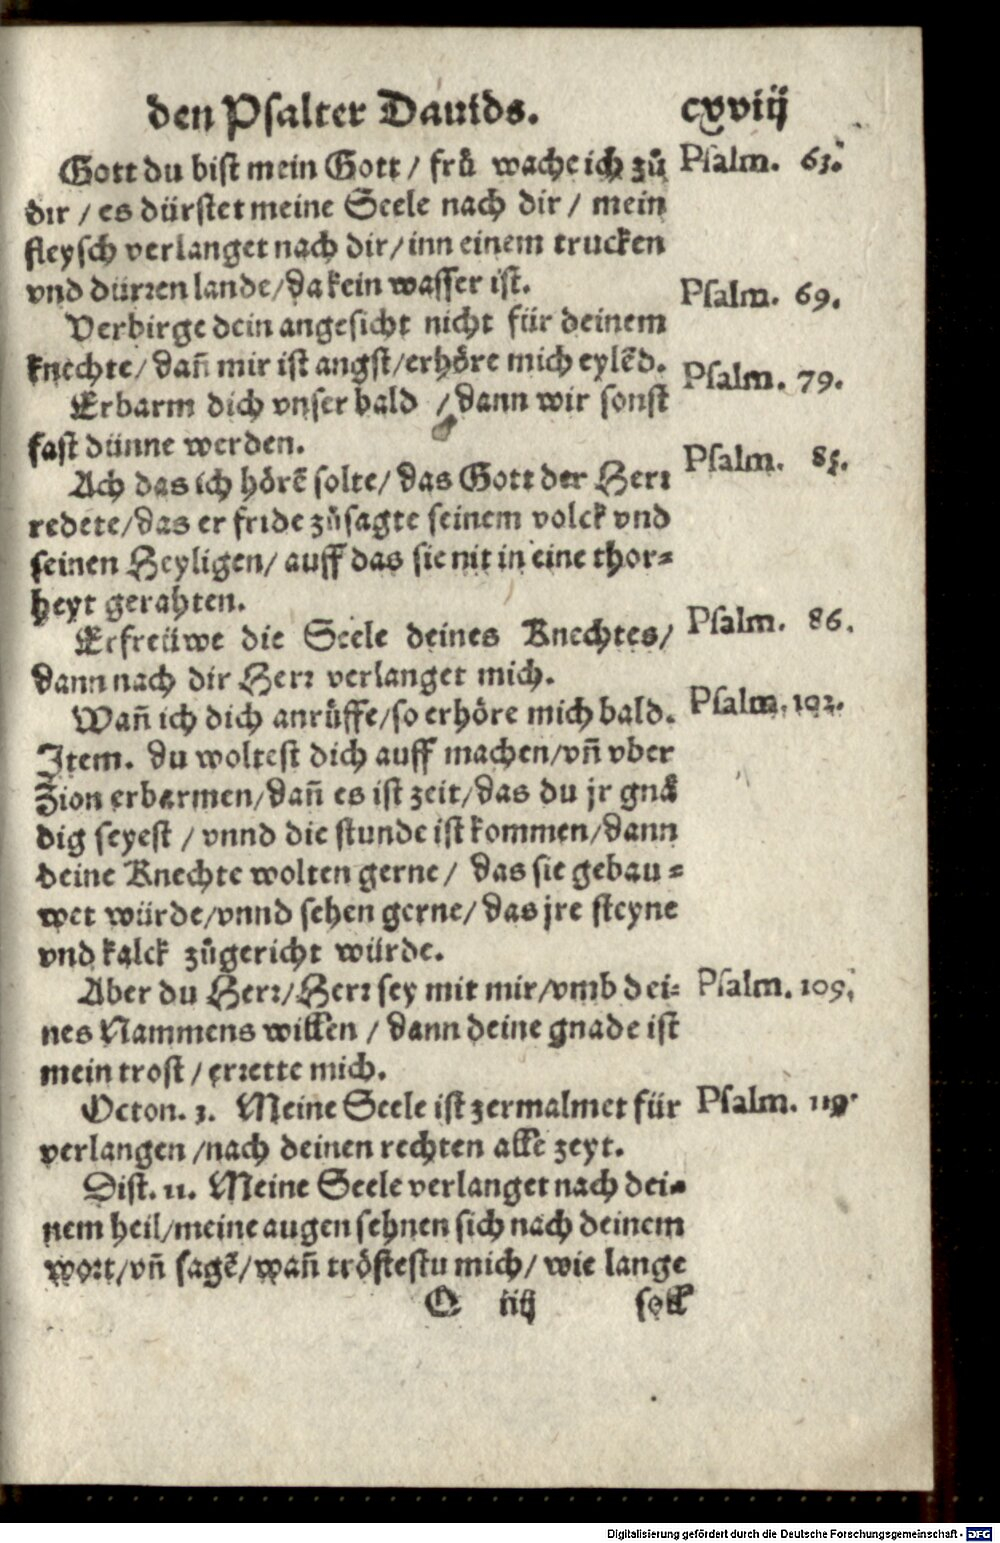 den Psalter Dauids. cxviij
Gott du bist mein Gott / frů wache ich zů Psalm. 63.
dir / es dürstet meine Seele nach dir / mein
fleysch verlanget nach dir / inn einem trucken
vnd dürren lande / da kein wasser ist.
Verbirge dein angesicht nicht für deinem Psalm. 69.
knechte / dañ mir ist angst / erhöre mich eylēd.
Erbarm dich vnser bald / dann wir sonst Psalm. 79.
fast dünne werden.
Ach das ich hörē solte / das Gott der Herr Psalm. 85.
redete / das er fride zůsagte seinem volck vnd
seinen Heyligen / auff das sie nit in eine thor=
heyt gerahten.
Erfreüwe die Seele deines Knechtes / Psalm. 86.
dann nach dir Herr verlanget mich.
Wañ ich dich anrüffe / so erhöre mich bald. Psalm. 102.
Item. du woltest dich auff machen / vñ vber
Zion erbarmen / dañ es ist zeit / das du jr gnå
dig seyest / vnnd die stunde ist kommen / dann
deine Knechte wolten gerne / das sie gebau=
wet würde / vnnd sehen gerne / das jre steyne
vnd kalck zůgericht würde.
Aber du Herr / Herr sey mit mir / vmb dei= Psalm. 109.
nes Nammens willen / dann deine gnade ist
mein trost / errette mich.
Octon. 3. Meine Seele ist zermalmet für Psalm. 119.
verlangen / nach deinen rechten alle zeyt.
Dist. 11. Meine Seele verlanget nach dei=
nem heil / meine augen sehnen sich nach deinem
wort / vñ sagē / wañ tröstestu mich / wie lange
Q iiij soll
Digitalisierung gefördert durch die Deutsche Forschungsgemeinschaft - DFG